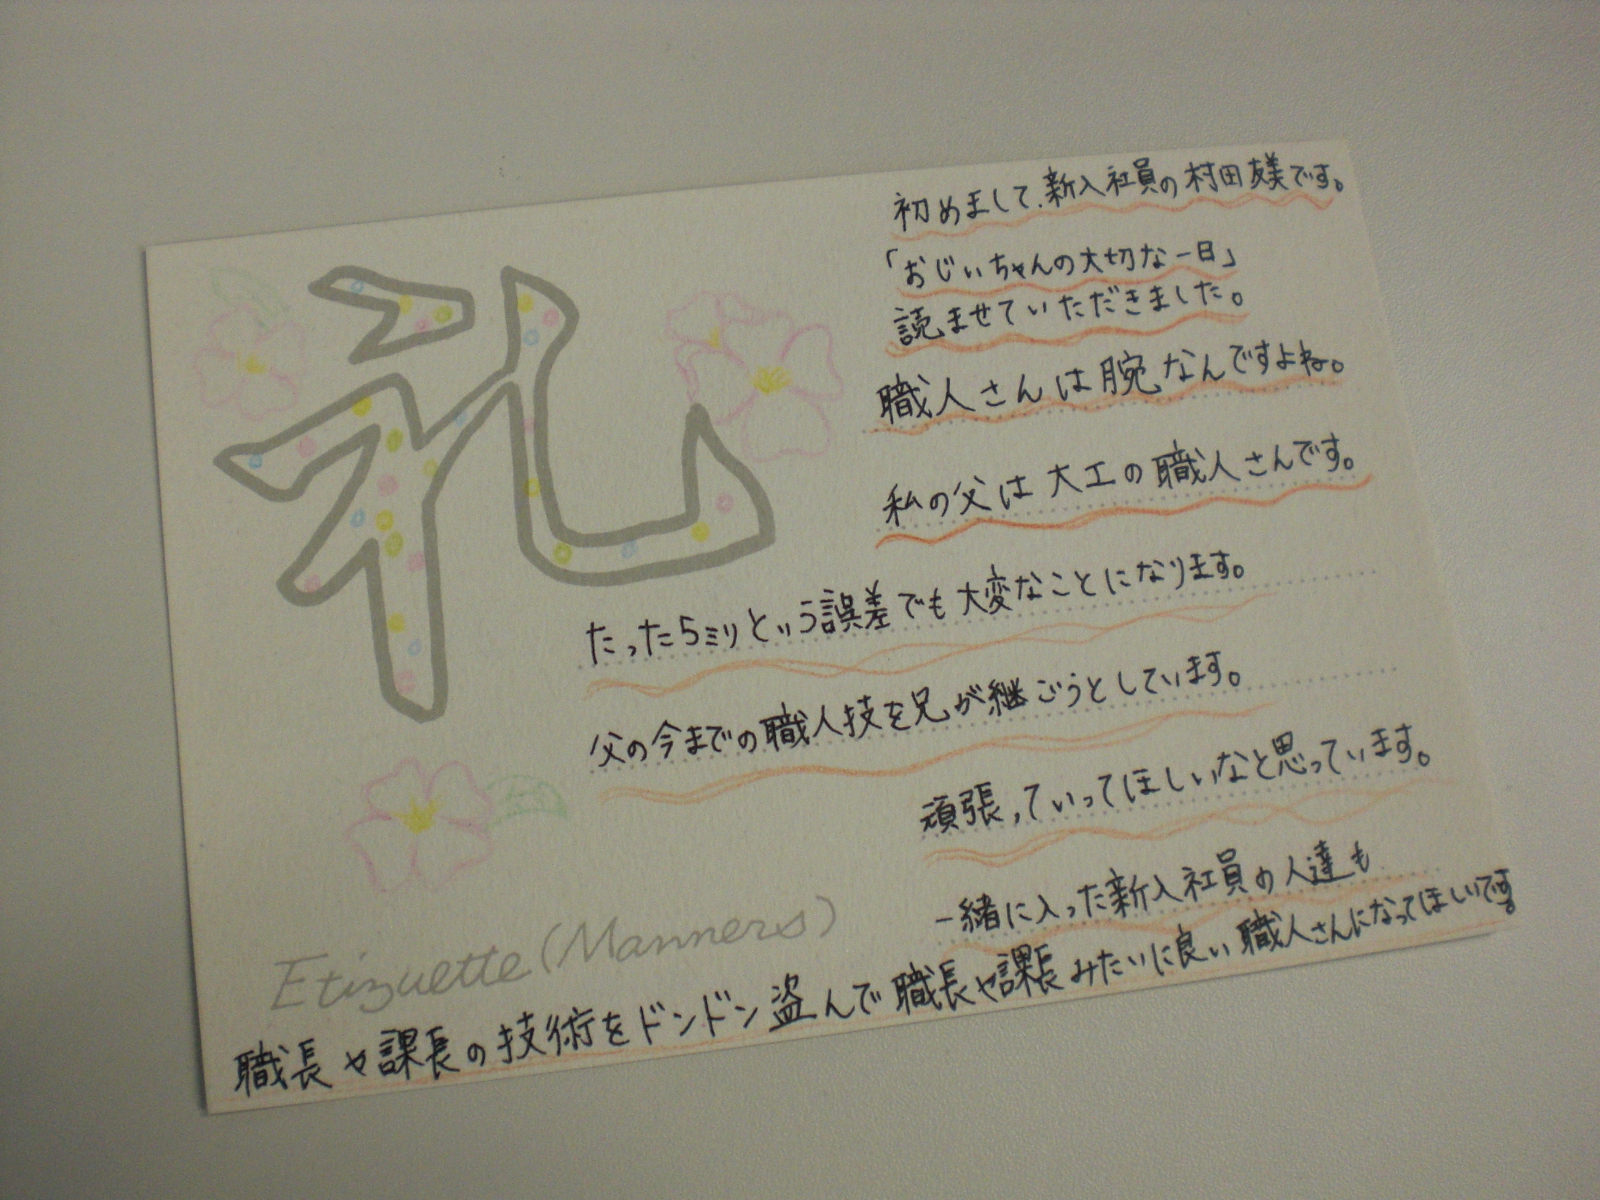 礼
初めまして、新入社員の村田友美です。
「おじいちゃんの大切な一日」
読ませていただきました。
職人さんは腕なんですよね。
私の父は大工の職人さんです。
たった5ミリという誤差でも大変なことになります。
父の今までの職人技を兄が継ごうとしています。
頑張っていってほしいなと思っています。
一緒に入った新入社員の人達も
職長や課長の技術をドンドン盗んで職長や課長みたいに良い職人さんになってほしいです
Etizuette (Manners)